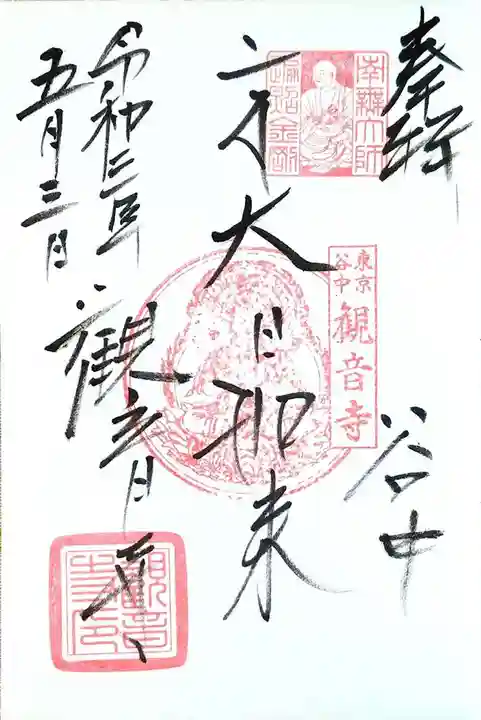 奉拝
谷中
南無大師
遍照金剛
東京
谷中
観音寺
大日如来
令和三年
五月三日
観音寺